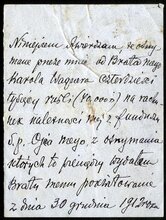 Niniejszem stwierdzam, że otrzy-
mane przez mnie od Brata mego
Karola Wagnera czterdzieści
tysięcy rubli (40.000) na rachu-
nek należności mej z funduszu
ś.p. Ojca mego z otrzymania
których to pieniędzy wydałam
Bratu memu pokwitowanie
z dnia 30 grudnia 1912